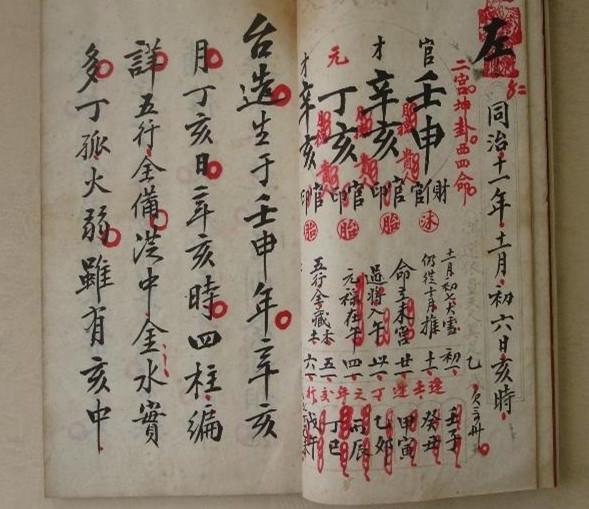 左
同治十一年十一月初六日亥時
二宮坤卦西四命
官 壬申 財印官 沐
才 辛亥 官印 胎
元 丁亥 官印 胎
才 辛亥 官印 胎
十一月初七大雪
仍從十月推
命立未宮
過將入午
元祿在午
五行金藏
初一 壬子
十一 癸丑
廿一 甲寅
卅一 乙卯
四一 丙辰
五一 丁巳
六一 戊午
台造生于壬申年辛亥
月丁亥日辛亥時四柱編
詳五行全備洪中金水實
多丁孤火弱雖有亥中